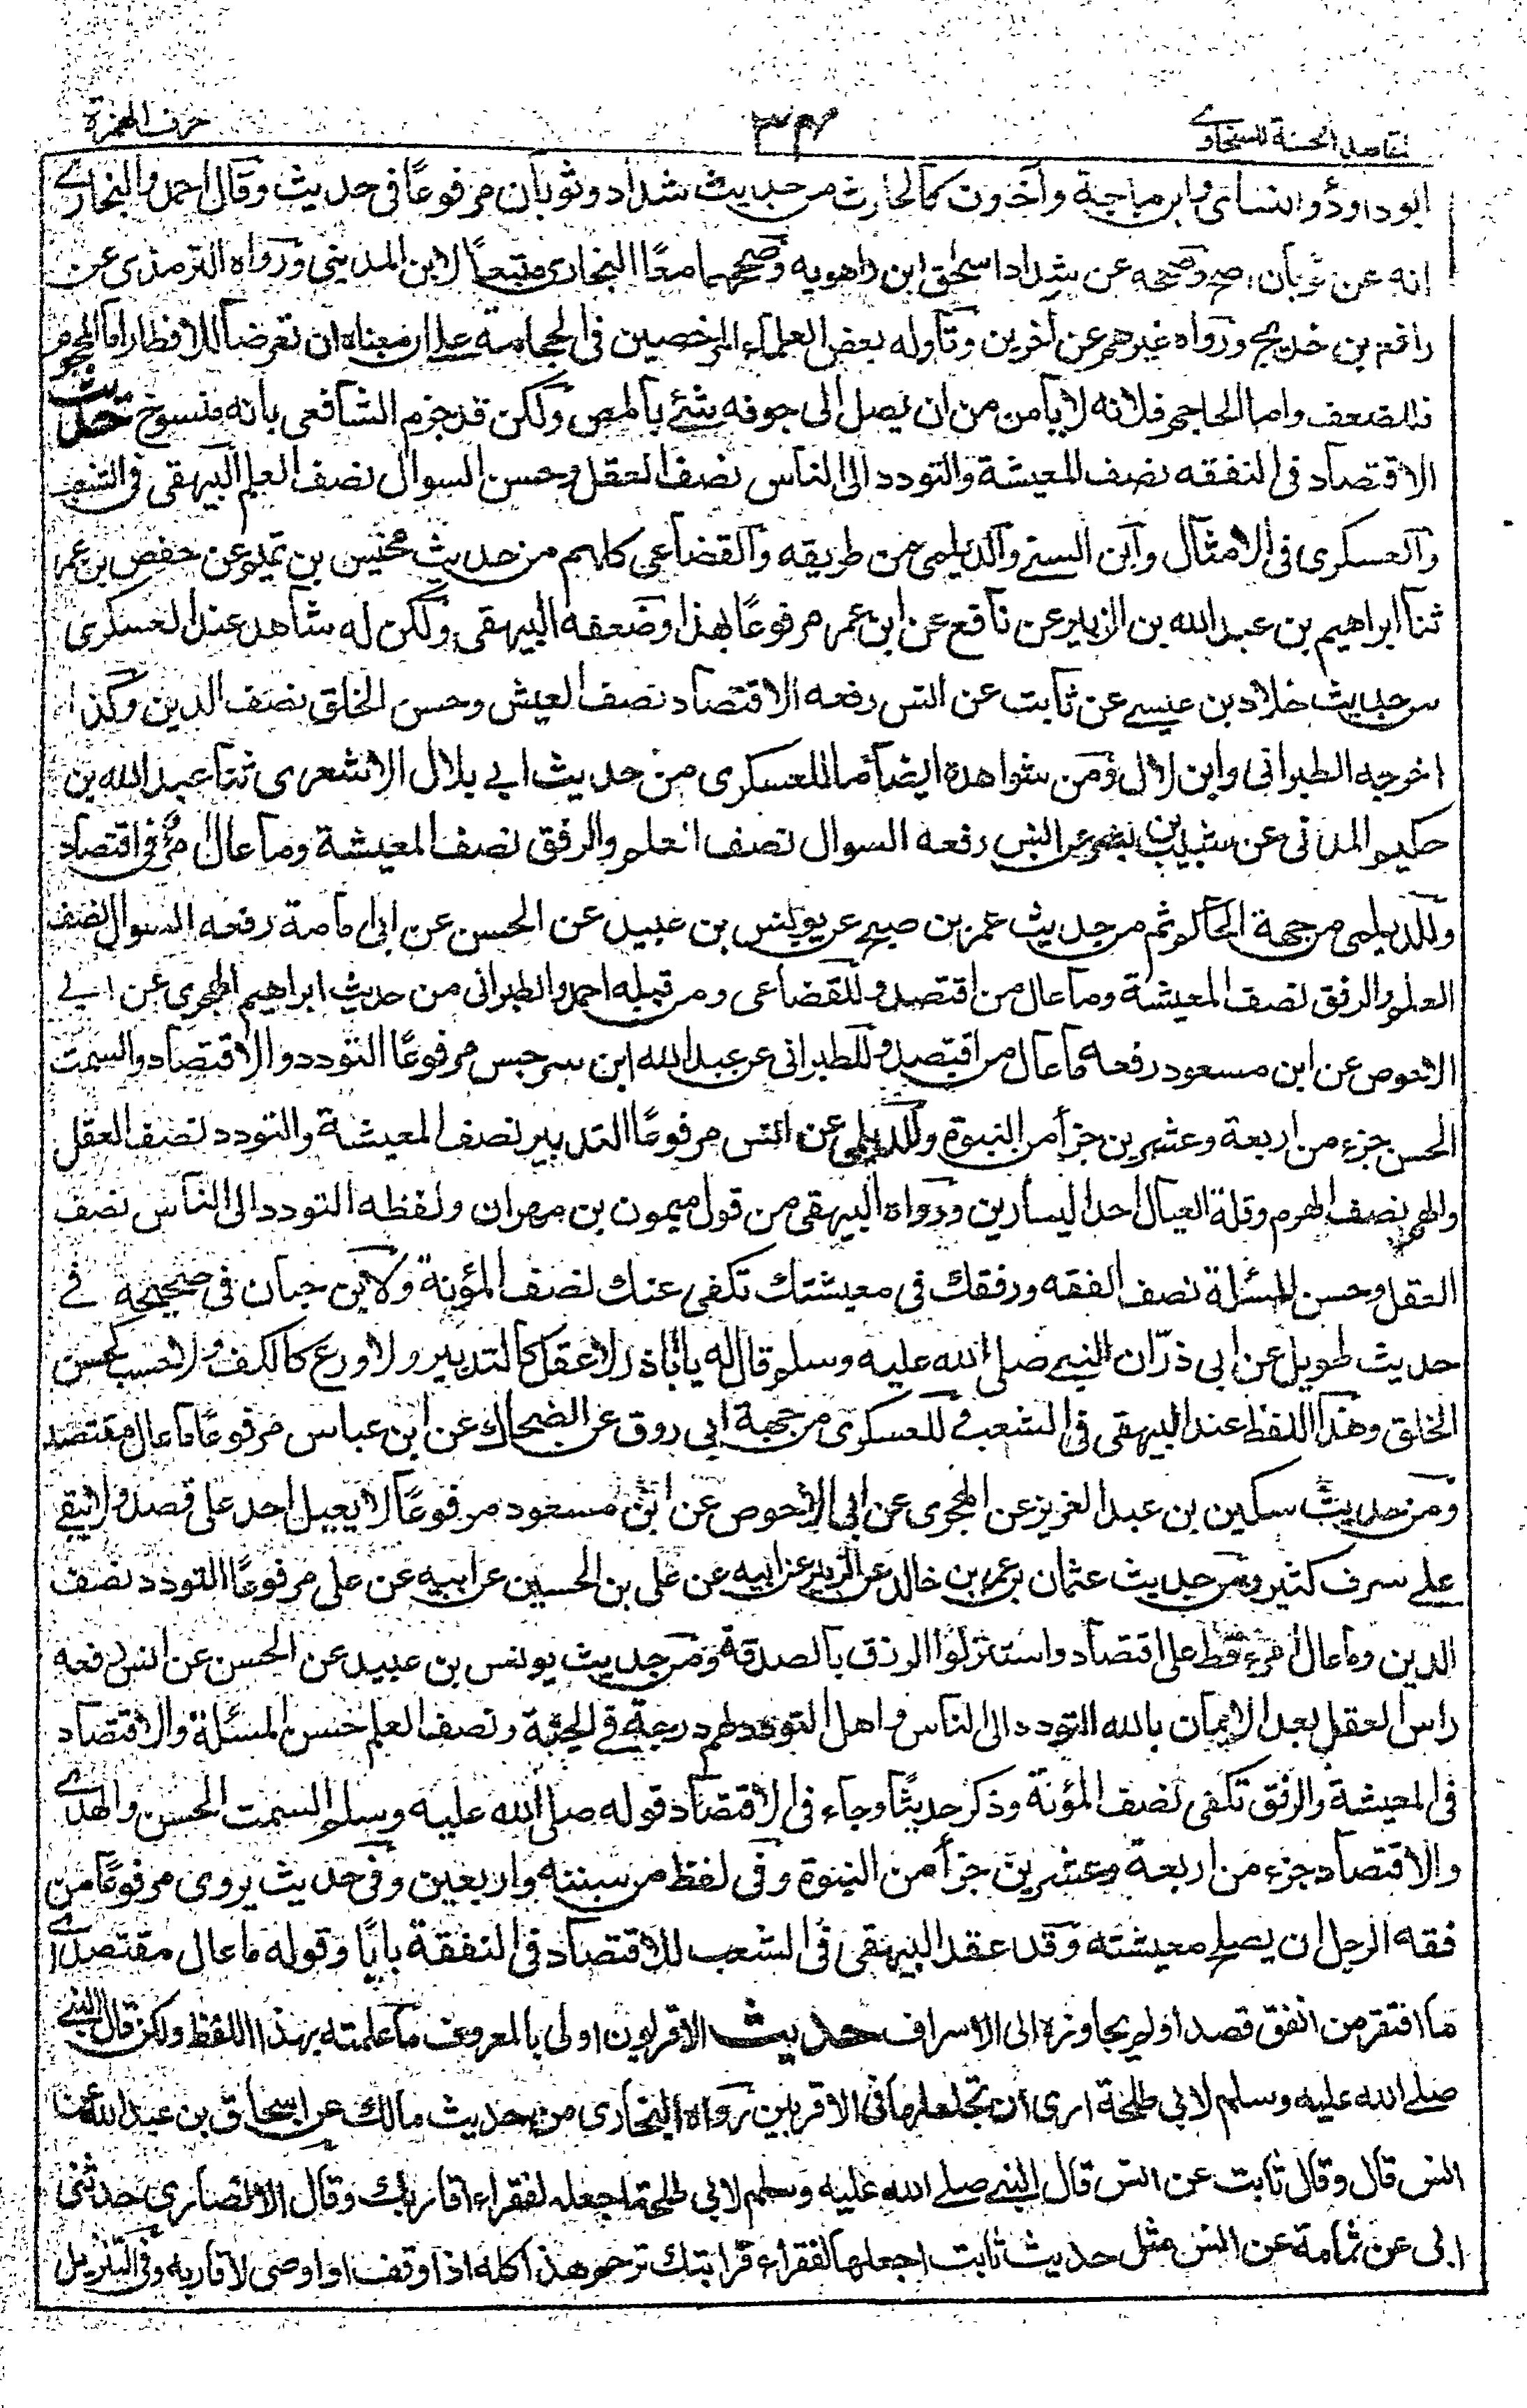 لمقاصد الحسنة للسخاوى ٣٤ حرف الهمزة
ابوداود والنسائى وابن ماجة وآخرون كالحارث من حديث شداد وثوبان مرفوعًا فى حديث وقال احمد والبخارى
انه عن ثوبان اصح وصححه عن شداد اسحق ابن راهويه وصححهما معًا البخارى متبعًا لابن المدينى ورواه الترمذى عن
رافع بن خديج ورواه غيرهم عن آخرين وتأوله بعض العلماء المرخصين فى الحجامة على ان معناه ان تعرضا للافطار اما المحجوم
فللضعف واما الحاجم فلانه لا يأمن من ان يصل الى جوفه شئ بالمص ولكن قد جزم الشافعى بانه منسوخ حديث
الاقتصاد فى النفقه نصف المعيشة والتودد الى الناس نصف العقل وحسن السوال نصف العلم البيهقى فى الشعب
والعسكرى فى الامثال وابن السنى والديلمى من طريقه والقضاعى كلهم من حديث مخيس بن تميم عن حفص بن عمر
ثنا ابراهيم بن عبد الله بن الزبير عن نافع عن ابن عمر مرفوعًا بهذا وضعفه البيهقى ولكن له شاهد عند العسكرى
من حديث خلاد بن عيسى عن ثابت عن انس رفعه الاقتصاد نصف العيش وحسن الخلق نصف الدين وكذا
اخرجه الطبرانى وابن لال ومن شواهده ايضا ما للعسكرى من حديث ابى بلال الاشعرى ثنا عبد الله بن
حكيم المدنى عن شبيب بن بشر عن انس رفعه السوال نصف العلم والرفق نصف المعيشة وما عال امرؤ فى اقتصاد
وللديلمى من جهة الحاكم ثم من حديث عمر بن صبح عن يونس بن عبيد عن الحسن عن ابى امامة رفعه السوال نصف
العلم والرفق نصف المعيشة وما عال من اقتصد وللقضاعى ومن قبله احمد والطبرانى من حديث ابراهيم الهجرى عن ابى
الاحوص عن ابن مسعود رفعه ما عال من اقتصد وللطبرانى عن عبد الله ابن سرجس مرفوعًا التودد والاقتصاد والسمت
الحسن جزء من اربعة وعشرين جزأ من النبوة وللديلمى عن انس مرفوعًا التدبير نصف المعيشة والتودد نصف العقل
والهم نصف الهرم وقلة العيال احد اليسارين ورواه البيهقى من قول ميمون بن مهران ولفظه التودد الى الناس نصف
العقل وحسن المسئلة نصف الفقه ورفقك فى معيشتك تكفى عنك نصف المؤنة ولابن حبان فى صحيحه فى
حديث طويل عن ابى ذر ان النبى صلى الله عليه وسلم قال له يا اباذر لا عقل كالتدبير ولا ورع كالكف ولا حسب كحسن
الخلق وهذا اللفظ عند البيهقى فى الشعب وللعسكرى من جهة ابى روق عن الضحاك عن ابن عباس مرفوعًا ما عال مقتصد
ومن حديث سكين بن عبد العزيز عن الهجرى عن ابى الاحوص عن ابن مسعود مرفوعًا لا يعيل احد على قصد ولا يبقى
على سرف كثير ومن حديث عثمان بن عمر بن خالد عن الزبير عن ابيه عن على بن الحسين عن ابيه عن على مرفوعًا التودد نصف
الدين وما عال امرء قط على اقتصاد واستنزلوا الرزق بالصدقة ومن حديث يونس بن عبيد عن الحسن عن انس رفعه
راس العقل بعد الايمان بالله التودد الى الناس واهل التودد لهم درجة فى الجنة ونصف العلم حسن المسئلة والاقتصاد
فى المعيشة والرفق تكفى نصف المؤنة وذكر حديثًا وجاء فى الاقتصاد قوله صلى الله عليه وسلم السمت الحسن والهدى
والاقتصاد جزء من اربعة وعشرين جزأ من النبوة وفى لفظ من ستة واربعين وفى حديث يروى مرفوعًا من
فقه الرجل ان يصلح معيشته وقد عقد البيهقى فى الشعب للاقتصاد فى النفقة بابًا وقوله ما عال مقتصد اى
ما افتقر من انفق قصدا ولم يجاوزه الى الاسراف حديث الاقربون اولى بالمعروف ما علمته بهذا اللفظ ولكن قال النبى
صلى الله عليه وسلم لابى طلحة ارى ان تجعلها فى الاقربين رواه البخارى من حديث مالك عن اسحاق بن عبد الله عن
انس قال وقال ثابت عن انس قال النبى صلى الله عليه وسلم لابى طلحة اجعله لفقراء اقاربك وقال الانصارى حدثنى
ابى عن ثمامة عن انس مثل حديث ثابت اجعلها لفقراء قرابتك ترجم هذا كله اذا وقف او اوصى لاقاربه وفى التنزيل